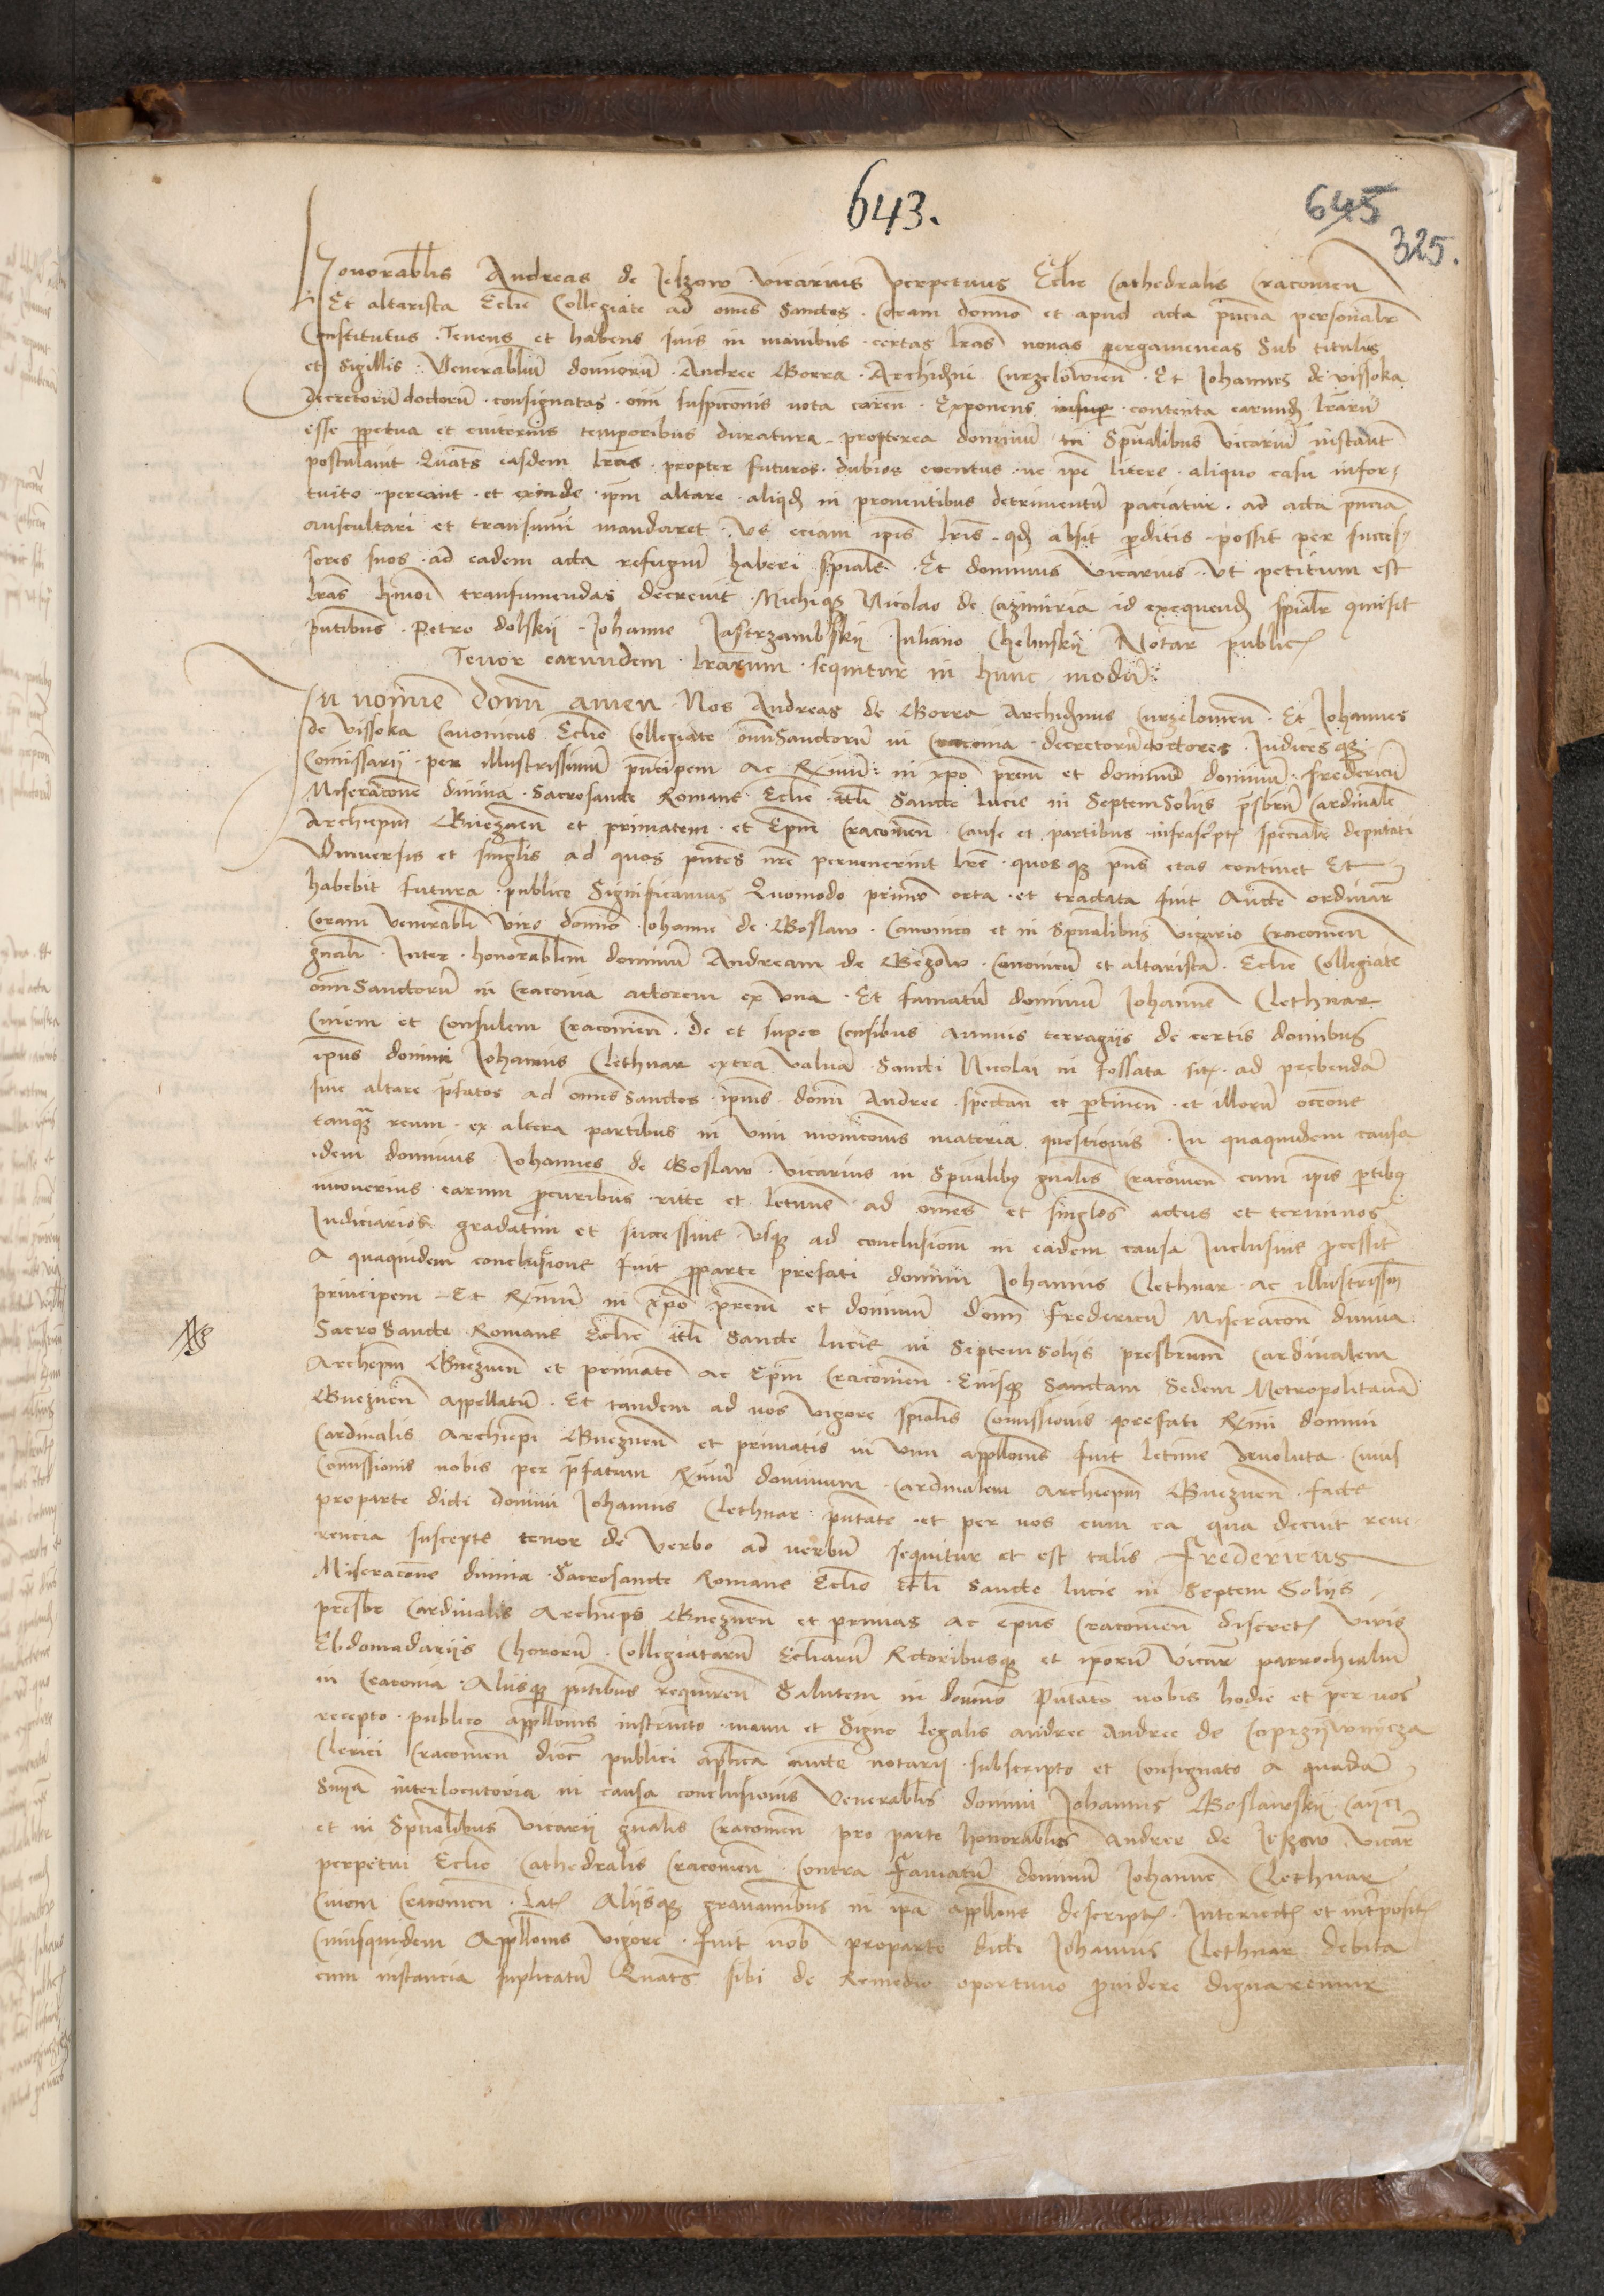 643.
645
325.
Honorabilis Andreas de Jeszow vicarius perpetuus Eclie Cathedralis Cracovien
Et altarista Eclie Collegiate ad omes Sanctos . Coram domino et apud acta pncia personalr
Constitutus . Tenens et habens suis in manibus . certas lras novas pergameneas Sub titulis
et Sigillis . Venerabiliu dominoru . Andree Gorra . Archidni Curzelowien . Et Johannis de vissoka
decretoru doctoru . consignatas . omi suspicionis nota caren . Exponens insup . contenta earund lraru
esse ppetua et eviternis temporibus duratura . propterea dominu in Spualibus Vicariu instant
postulavit . Quats easdem lras . propter futuros . dubios eventus . ne ipe litere . aliquo casu infor-
tuito . pereant . et exinde . ipm altare . aliqd in proventibus detrimentu paciatur . ad acta pncia
auscultari et transumi mandaret . Ut eciam ipis lris . qd absit pditis . possit per succes-
sores suos . ad eadem acta refugiu haberi spiale . Et dominus Vicarius . Ut petitum est
lras hmoi transumendas decrevit . Michiq Nicolao de Cazimiria id exequend spialr comisit
pntibus . Petro dolskij . Johanne Jastrzambskij . Juliano Chelmskij Notar public
Tenor earundem . lrarum . sequitur in hunc modu
In nomine domi amen . Nos Andreas de Gorra Archidnus Curzelowien . Et Johannes
de Vissoka Canonicus Eclie Collegiate omiu Sanctoru in Cracovia . decretoru doctores . Judicesq
Comissarij . per illustrissimu principem ac Rmu in xpo prem et dominu dominu . fredericu
Miseracone divina . Sacrosancte Romane Eclie . ttli Sancte lucie in Septem Solijs psbrm Cardinale
Archiepm Gneznen et primatem . et Epm Cracovien . Cause et partibus . infrascpt . specialr deputati
Universis et singlis ad quos pntes nre pervenerint lre . quosq pns etas continet Et
habebit futura . publice Significamus Quomodo primo orta . et tractata fuit Aucte ordinar
Coram Venerabli viro domino Johanne de Goslaw . Canonico et in Spualibus Vicario Cracovien
gnali . Inter . honorablem dominu Andream de Gezow . Canonicu et altarista . Eclie Collegiate
omiu Sanctoru in Cracovia actorem ex una . Et famatu dominu Johanne Clethnar
Civem et Consulem Cracovien . de et super Censibus annuis terragijs de certis domibus
ipius domini Johannis Clethnar extra valva Sancti Nicolai in fossata sit . ad prebenda
sive altare pfatos ad omes Sanctos . ipius domi Andree . spectan et ptinen . et illoru occone
tanq reum . ex altera partibus in vim monicionis materia questionis . In quaquidem causa
idem dominus Johannes de Goslaw . vicarius in Spualib gnalis Cracovien cum ipis ptibus
 earum pcuribus . ritte et letime ad omes et singlos actus et terminos
Judiciarios gradatim et successive usq ad conclusionem in eadem causa Inclusive pcessit
A quaquidem conclusione fuit pparte prefati domini Johannis Clethnar . ac illustrissim
principem . Et Rmu in xpo prem et dominu domi fredericu Miseracon divina
Sacro Sancte Romane Eclie ttli Sancte lucie in Septem solijs presbrum Cardinalem
Archiepm Gneznen et primate ac Epm Cracovien . Eiusq Sanctam Sedem Metropolitana
Gneznen appellatu . Et tandem ad nos vigore spialis Comissionis prefati Rmi domini
Cardinalis Archiepi Gneznen et primatis in vim appllonis fuit letime devoluta . Cuius
Comissionis nobis per pfatum Rmu dominum . Cardinalem Archiepm Gneznen . facte
proparte dicti domini Johannis Clethnar . pntate . et per nos cum ea qua decuit reve-
rencia suscepte tenor de verbo ad verbu sequitur et est talis Fredericus
Miseracone divina . Sacrosancte Romane Eclie ttli Sancte lucie in Septem Solijs
presbr Cardinalis Archieps Gneznen et primas ac epus Cracovien discret viris
Ebdomadarijs Chororu . Collegiataru Ecliaru Rectoribusq et iporu vicar parrochialiu
in Cracovia . Alijsq pntibus requiren Salutem in domino Pntato nobis hodie et per nos
recepto . publico appllonis instrnto . manu et Signo legalis andree Andree de Coprzijwnijcza
Clerici Cracovien dioc publici aplica aucte notarij . subscripto et Consignato A quada
Snia interlocutoria in causa conclusionis Venerablis domini Johannis Goslawskij Canci
et in Spualibus Vicarij gnalis Cracovien pro parte honorablis Andree de Jeszow vicar
perpetui Eclie Cathedralis Cracovien . Contra Famatu dominu Johanne Clethnar
Civem Cracovien . lat Alijsq gravaminibus in ipa appllone descript . Interiect et intposit
Cuiusquidem Appllonis vigore . fuit nob proparte dicti Johannis Clethnar debita
cum instancia suplicatu Quats sibi de Remedio oportuno pvidere dignaremur